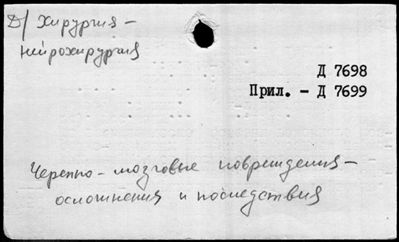 Д/ Хирургия –
нейрохирургия
Д 7698
Прил. – Д 7699
Черепно-мозговые повреждения –
осложнения и последствия